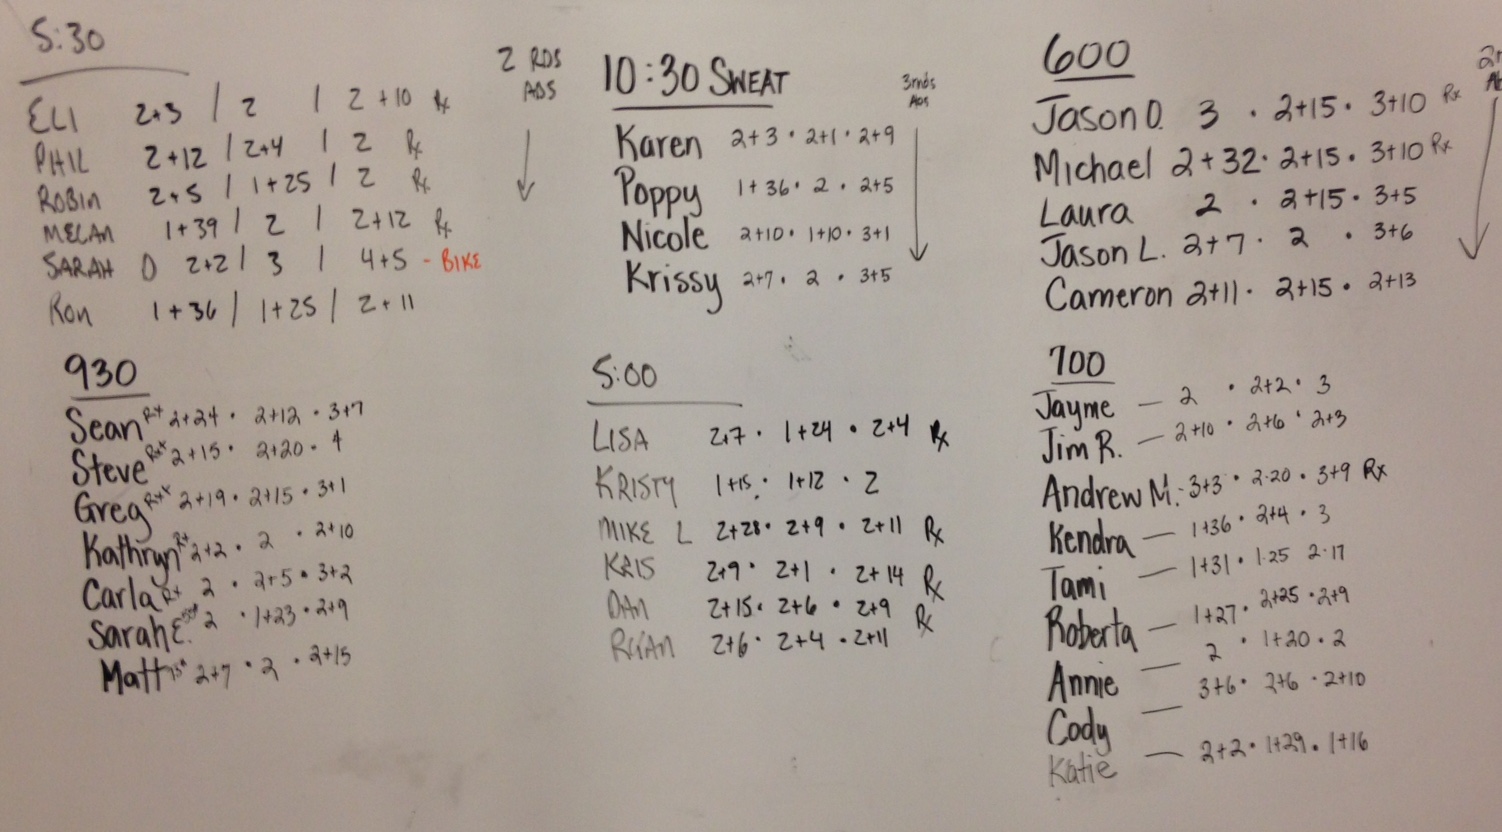 5:30
2 RDS
ELI 2+3 / 2 | 2+10 Rx
PHIL 2+12 / 2+4 | 2 Rx
ROBIN 2+5 / 1+25 / 2 Rx
MEGAN 1+39 / 2 | 2+12 Rx
SARAH O 2+2 / 3 | 4+5 - BIKE
RON 1+36 / 1+25 / 2+11
10:30 SWEAT
3rnds
Karen 2+3 · 2+1 · 2+9
Poppy 1+36 · 2 · 2+5
Nicole 2+10 · 1+10 · 3+1
Krissy 2+7 · 2 · 3+5
600
Jason O. 3 · 2+15 · 3+10 Rx
Michael 2+32 · 2+15 · 3+10 Rx
Laura 2 · 2+15 · 3+5
Jason L. 2+7 · 2 · 3+6
Cameron 2+11 · 2+15 · 2+13
930
Sean Rx 2+24 · 2+12 · 3+7
Steve Rx 2+15 · 2+20 · 4
Greg Rx 2+19 · 2+15 · 3+1
Kathryn Rx 2+2 · 2 · 2+10
Carla Rx 2 · 2+5 · 3+2
Sarah E. 2 · 1+23 · 2+9
Matt 2+7 · 2 · 2+15
5:00
LISA 2+7 · 1+24 · 2+4 Rx
KRISTY 1+15 · 1+12 · 2
MIKE L 2+28 · 2+9 · 2+11 Rx
KRIS 2+9 · 2+1 · 2+14 Rx
DAN 2+15 · 2+6 · 2+9 Rx
RYAN 2+6 · 2+4 · 2+11
700
Jayme — 2 · 2+2 · 3
Jim R. — 2+10 · 2+6 · 2+3
Andrew M. - 3+3 · 2·20 · 3+9 Rx
Kendra — 1+36 · 2+4 · 3
Tami — 1+31 · 1·25 2·17
Roberta — 1+27 · 2+25 · 2+9
Annie — 2 · 1+20 · 2
Cody — 3+6 · 2+6 · 2+10
Katie — 2+2 · 1+29 · 1+16